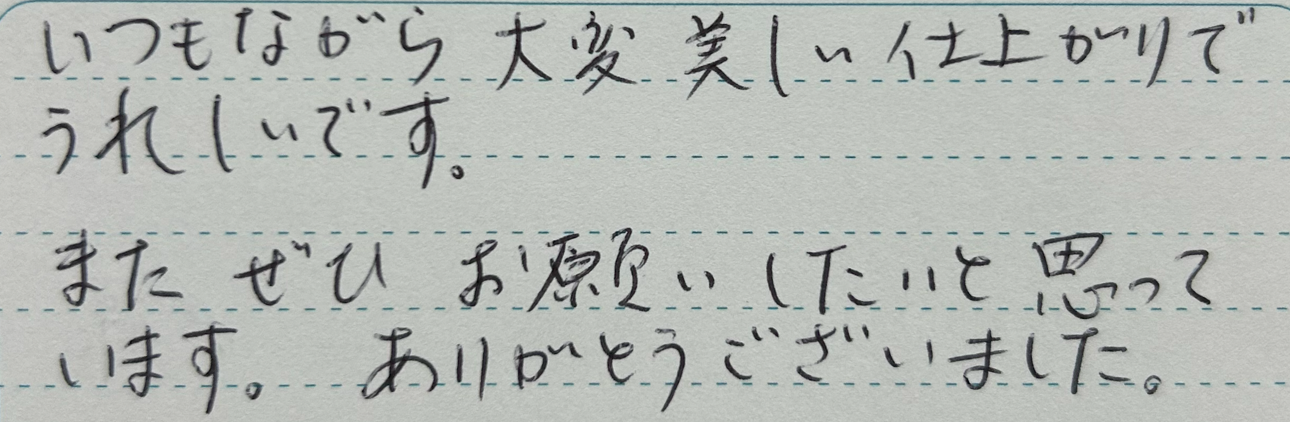 いつもながら 大変 美しい 仕上がりで
うれしいです。
また ぜひ お願い したいと 思って
います。 ありがとうございました。